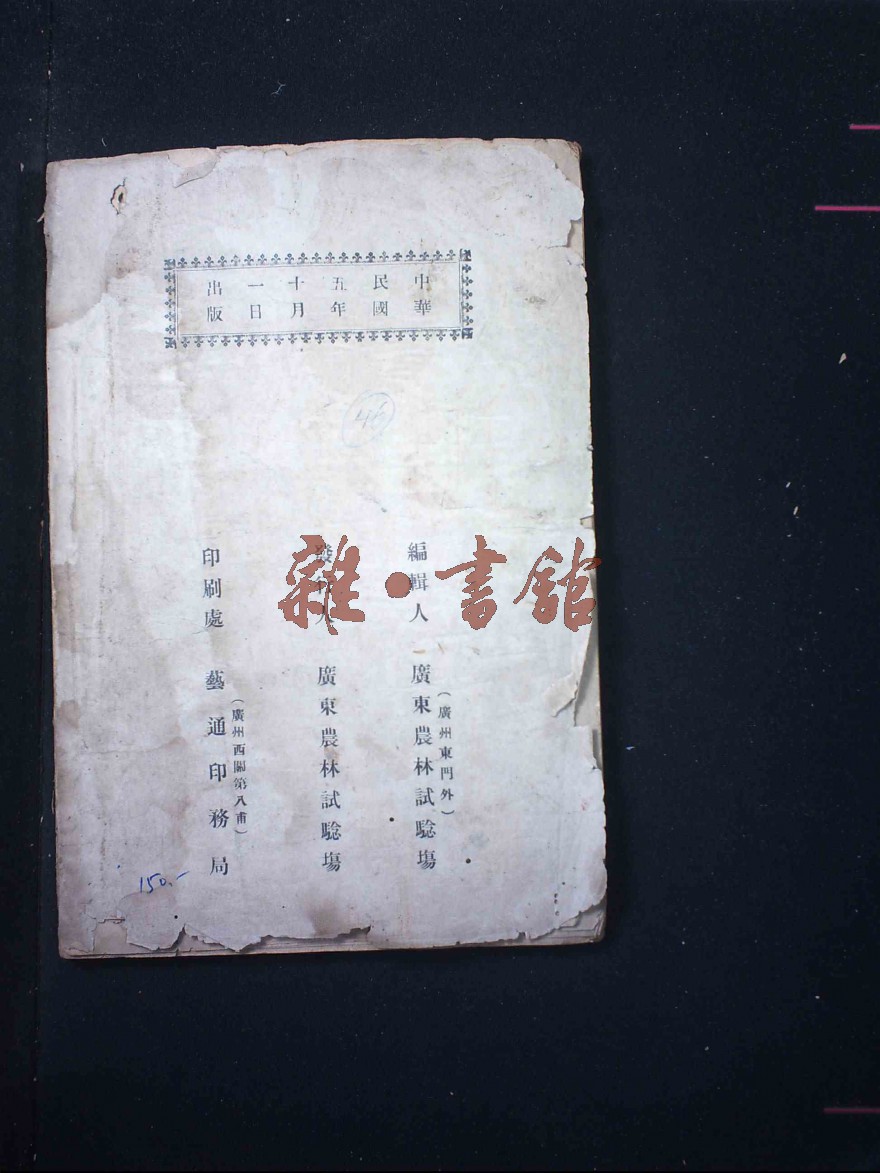 中華民國五年十月一日出版
46
編輯人 廣東農林試驗塲
(廣州東門外)
發行人 廣東農林試驗塲
印刷處 藝通印務局
(廣州西關第八甫)
雜·書館
150.-